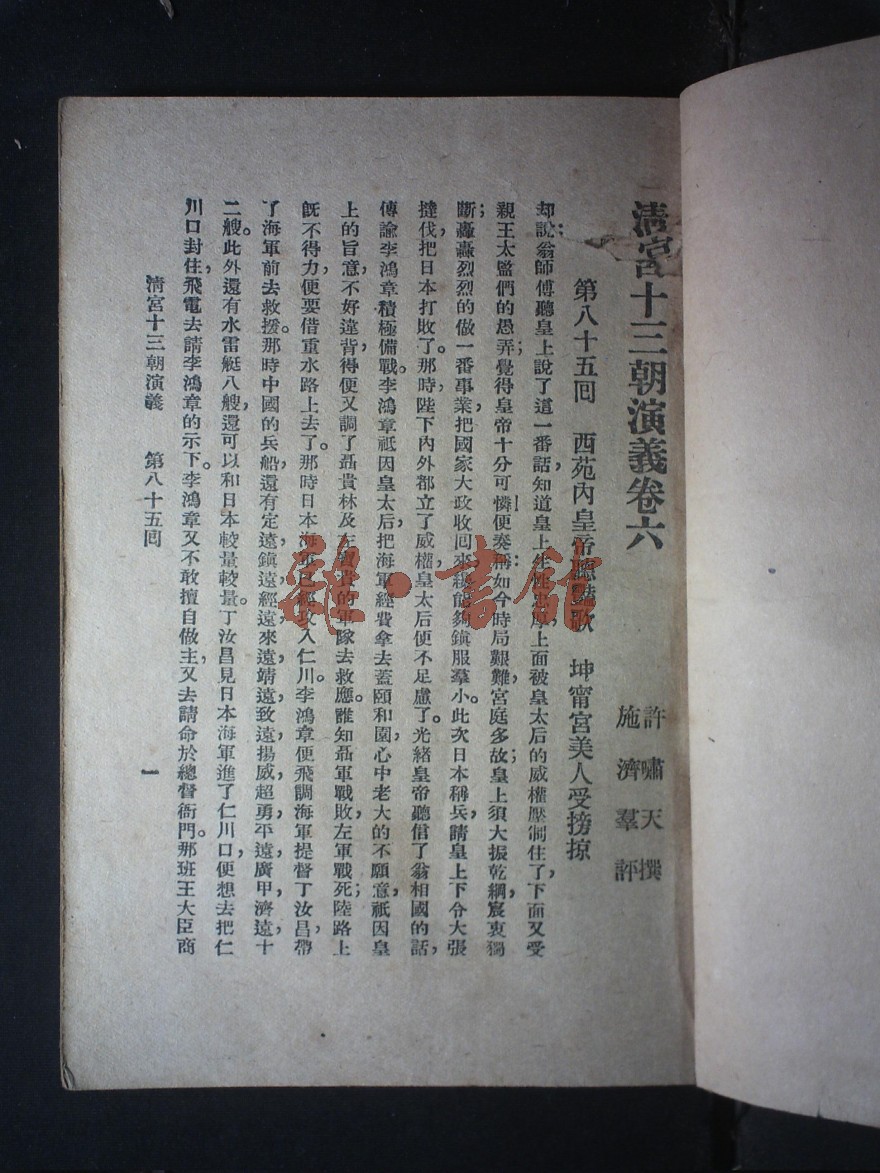 清宮十三朝演義卷六
許嘯天撰
施濟羣評
第八十五囘　西苑內皇帝聽豔歌　坤甯宮美人受搒掠
却說；翁師傅聽皇上說了這一番話，知道皇上生性忠厚，上面被皇太后的威權壓制住了，下面又受
親王太監們的愚弄；覺得皇帝十分可憐，便奏稱：如今時局艱難，宮庭多故；皇上須大振乾綱，宸衷獨
斷；轟轟烈烈的做一番事業，把國家大政收囘來，纔能夠鎭服羣小。此次日本稱兵，請皇上下令大張
撻伐，把日本打敗了。那時，陛下內外都立了威權，皇太后便不足慮了。光緒皇帝聽信了翁相國的話，
傳諭李鴻章積極備戰。李鴻章祇因皇太后，把海軍經費拿去蓋頤和園，心中老大的不願意，祇因皇
上的旨意，不好違背得，便又調了聶貴林及左寶貴的軍隊去救應。誰知聶軍戰敗，左軍戰死；陸路上
旣不得力，便要借重水路上去了。那時日本海軍已經攻入仁川。李鴻章便飛調海軍提督丁汝昌，帶
了海軍前去救援。那時中國的兵船，還有定遠，鎭遠，經遠，來遠，靖遠，致遠，揚威，超勇，平遠，廣甲，濟遠，十
二艘。此外還有水雷艇八艘，還可以和日本較量較量。丁汝昌見日本海軍進了仁川口，便想去把仁
川口封住，飛電去請李鴻章的示下。李鴻章又不敢擅自做主，又去請命於總督衙門。那班王大臣商
清宮十三朝演義　第八十五囘　一
雜·書館